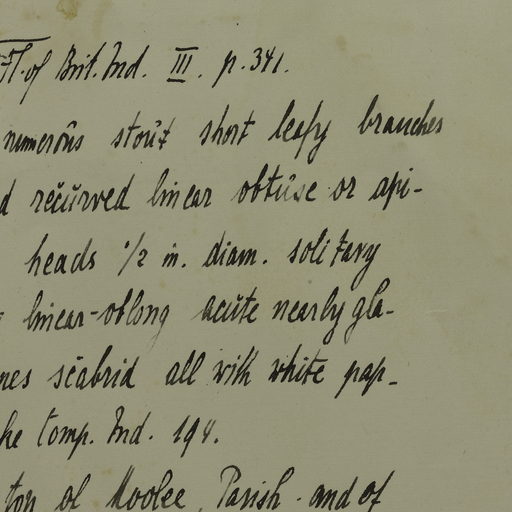 Fl. of Brit. Ind. III. p. 341.
numerous stout short leafy branches
d recurved linear obtuse or api-
heads 1/2 in. diam. solitary
linear-oblong acute nearly gla-
nes scabrid all with white pap-
ke Comp. Ind. 194.
top of Moolee, Parish - and of